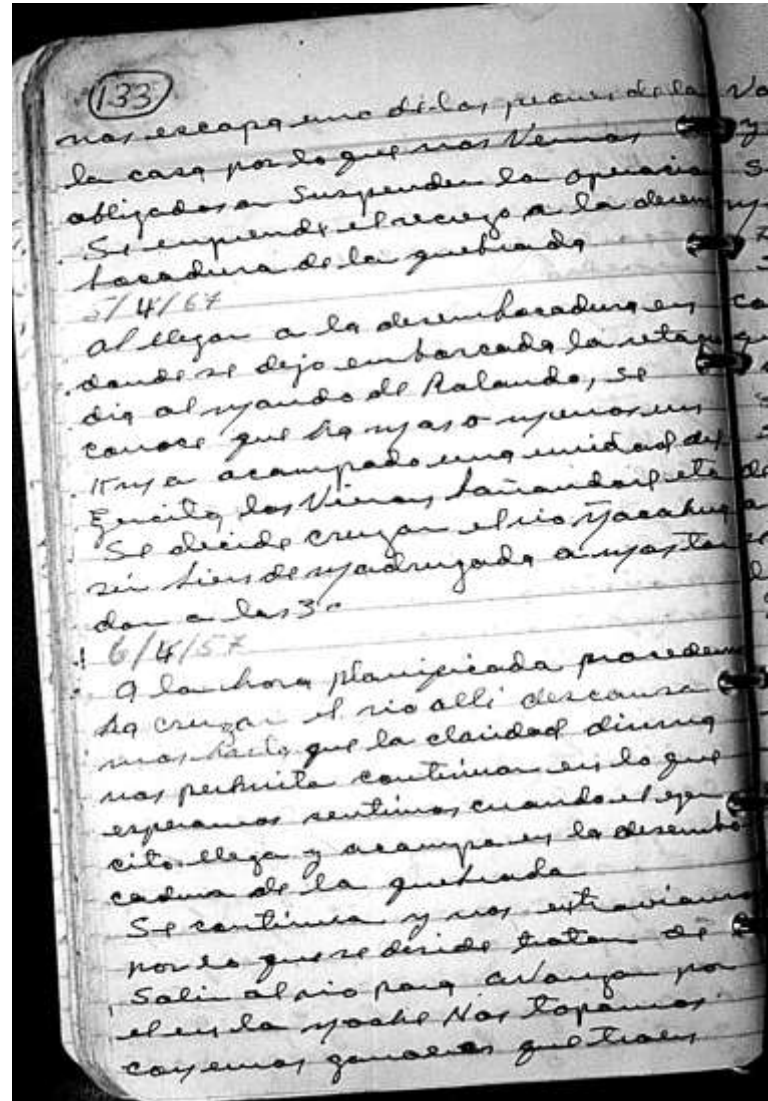 133
nos escapa uno de los peones de la
la casa por lo que nos Vemos
obligados a Suspender la operacion
Se emprende el recrezo a la desem
bocadura de la quebrada
5/4/67
Al llegar a la desembocadura en
donde se dejo emboscada la retaguar
dia al mando de Rolando, se
conoce que ha mas o menos un
Km a acampado una unidad del
Ejercito, los Vieron bañandose etc
Se decide cruzar el rio Ñacahua
sin bien de madrugada a mas tar
dar a las 3.
6/4/57
A la hora planificada procedem
ha cruzar el rio alli descansa
mos hasta que la claridad diurna
nos perhmita continuar en lo que
esperamos sentimos cuando el ejer
cito llega y acampa en la desembo
cadura de la quebrada
Se continua y nos extraviamos
por lo que se deside tratar de
Salir al rio para aVanzar por
el en la noche Nos topamos
con unos ganaderos que traen